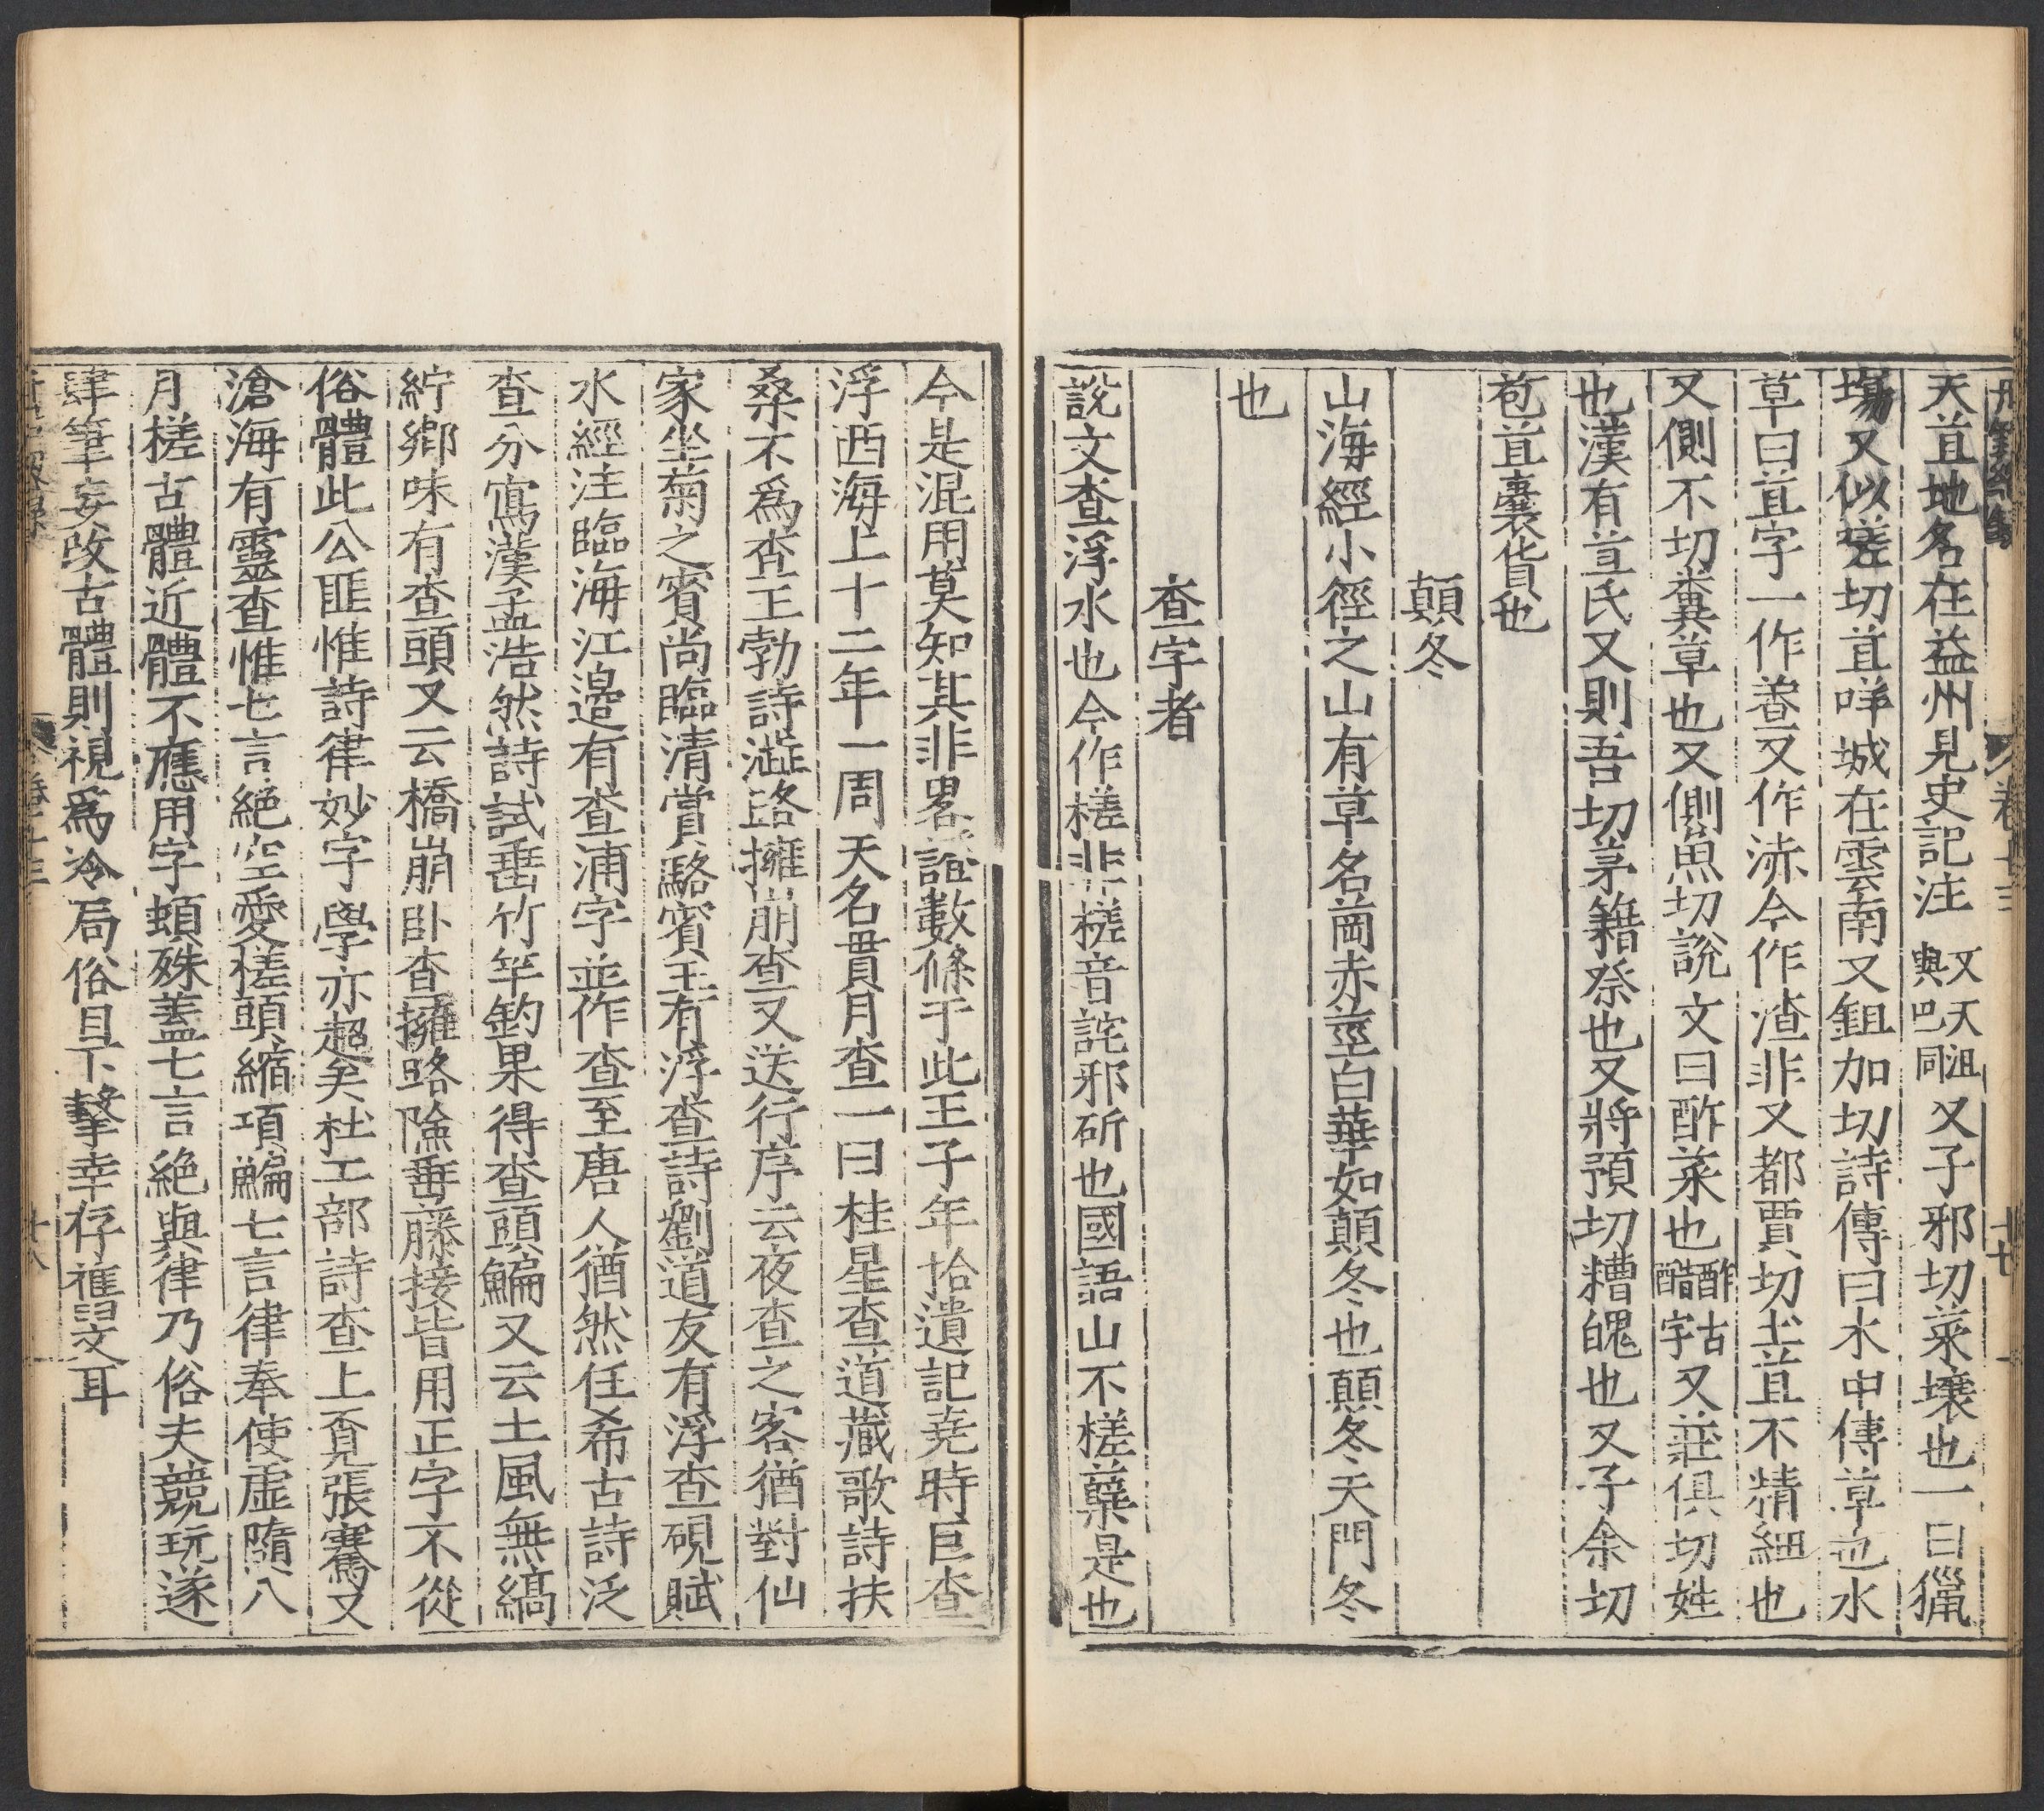 天苴地名在益州見史記注又天沮與巴同又子邪切菜壤也一曰獵
場又似嗟切苴咩城在雲南又鉏加切詩傳曰木中傳草也水
草曰苴字一作䔬又作渿今作渣非又都賈切土苴不精細也
又側不切糞草也又側魚切說文曰酢菜也酢古醋字又莊俱切姓
也漢有苴氏又則吾切茅籍祭也又將預切糟魄也又子余切
苞苴囊貨也
顛冬
山海經小徑之山有草名䒷赤莖白華如顛冬也顛冬天門冬
也
查字考
說文查浮水也今作槎非槎音詫邪斫也國語山不槎蘖是也
今是混用莫知其非畧證數條于此王子年拾遺記堯時巨查
浮西海上十二年一周天名貫月查一曰桂星查道藏歌詩扶
桑不爲查王勃詩澁路擁崩查又送行序云夜查之客猶對仙
家坐菊之賓尚臨清賞駱賓王有浮查詩劉道友有浮查硯賦
水經注臨海江邊有查浦字並作查至唐人猶然任希古詩泛
查分寫漢孟浩然詩試垂竹竿釣果得查頭鯿又云土風無縞
紵鄉味有查頭又云橋崩卧查擁路險垂藤接皆用正字不從
俗體此公匪惟詩律妙字學亦超矣杜工部詩查上覓張騫又
滄海有靈查惟七言絶空愛槎頭縮項鯿七言律奉使虛隨八
月槎古體近體不應用字頓殊蓋七言絶與律乃俗夫競玩遂
肆筆妄改古體則視爲冷局俗目下擊幸存舊文耳